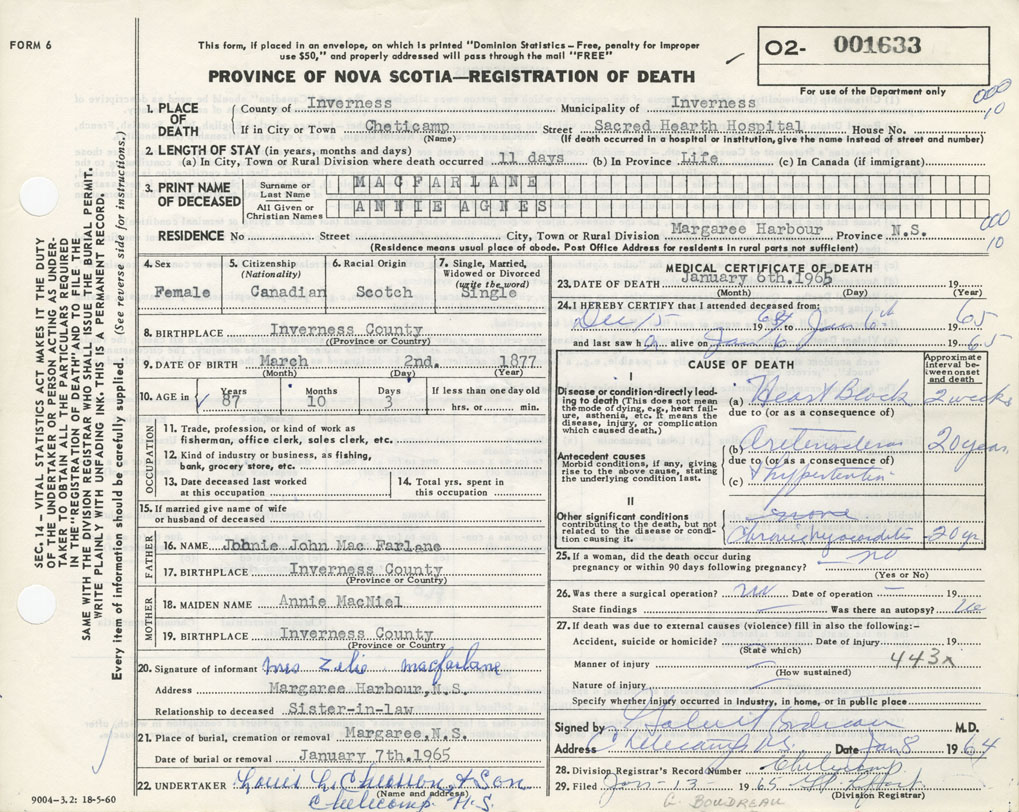 FORM 6
This form, if placed in an envelope, on which is printed "Dominion Statistics – Free, penalty for improper
use $50," and properly addressed will pass through the mail "FREE"
PROVINCE OF NOVA SCOTIA—REGISTRATION OF DEATH
O2- 001633
For use of the Department only
000
10
1. PLACE OF DEATH
County of Inverness Municipality of Inverness
If in City or Town Cheticamp Street Sacred Hearth Hospital House No.
(Name) (If death occurred in a hospital or institution, give the name instead of street and number)
2. LENGTH OF STAY (in years, months and days)
(a) In City, Town or Rural Division where death occurred 11 days (b) In Province Life (c) In Canada (if immigrant)
3. PRINT NAME OF DECEASED
Surname or Last Name MACFARLANE
All Given or Christian Names ANNIE AGNES
000
10
RESIDENCE No Street City, Town or Rural Division Margaree Harbour Province N.S.
(Residence means usual place of abode. Post Office Address for residents in rural parts not sufficient)
4. Sex
Female
5. Citizenship
(Nationality)
Canadian
6. Racial Origin
Scotch
7. Single, Married,
Widowed or Divorced
(write the word)
Single
8. BIRTHPLACE Inverness County
(Province or County)
9. DATE OF BIRTH March 2nd. 1877
(Month) (Day) (Year)
10. AGE in
Years Months Days If less than one day old
87 10 3 hrs. or min.
OCCUPATION
11. Trade, profession, or kind of work as
fisherman, office clerk, sales clerk, etc.
12. Kind of industry or business, as fishing,
bank, grocery store, etc.
13. Date deceased last worked
at this occupation
14. Total yrs. spent in
this occupation
15. If married give name of wife
or husband of deceased
FATHER
16. NAME Johnie John Mac Farlane
17. BIRTHPLACE Inverness County
(Province or Country)
MOTHER
18. MAIDEN NAME Annie MacNiel
19. BIRTHPLACE Inverness County
(Province or Country)
20. Signature of informant Mrs Zelie Macfarlane
Address Margaree Harbour,N.S.
Relationship to deceased Sister-in-law
21. Place of burial, cremation or removal Margaree,N.S.
Date of burial or removal January 7th.1965
22. UNDERTAKER Louis L. Chiasson & Son
(Name and address)
Cheticamp N.S.
9004-3.2: 18-5-60
MEDICAL CERTIFICATE OF DEATH
23. DATE OF DEATH January 6th.1965 19
(Month) (Day) (Year)
24. I HEREBY CERTIFY that I attended deceased from:
Dec 15 1964 to Jan 6th 1965
and last saw h alive on Jan 6 1965
CAUSE OF DEATH
Approximate
interval be-
tween onset
and death
I
Disease or condition directly lead-
ing to death (This does not mean
the mode of dying, e.g., heart fail-
ure, asthenia, etc. It means the
disease, injury, or complication
which caused death.)
(a) Heart Block 2 weeks
due to (or as a consequence of)
Antecedent causes
Morbid conditions, if any, giving
rise to the above cause, stating
the underlying condition last.
(b) 20 years
due to (or as a consequence of)
(c) & hypertention
II
Other significant conditions
contributing to the death, but not
related to the disease or condi-
tion causing it.
none
20 yr.
25. If a woman, did the death occur during
pregnancy or within 90 days following pregnancy? no
(Yes or No)
26. Was there a surgical operation? no Date of operation – 19
State findings Was there an autopsy? no
27. If death was due to external causes (violence) fill in also the following:–
Accident, suicide or homicide? Date of injury 19
(State which)
443x
Manner of injury
(How sustained)
Nature of injury
Specify whether injury occurred in Industry, in home, or in public place
Signed by M.D.
Address Cheticamp N.S. Date Jan 8 1964
28. Division Registrar's Record Number Cheticamp
29. Filed Jan - 13 1965
(Division Registrar)
G. BOUDREAU
SEC. 14 – VITAL STATISTICS ACT MAKES IT THE DUTY
OF THE UNDERTAKER OR PERSON ACTING AS UNDER-
TAKER TO OBTAIN ALL THE PARTICULARS REQUIRED
IN THE "REGISTRATION OF DEATH" AND TO FILE THE
SAME WITH THE DIVISION REGISTRAR WHO SHALL ISSUE THE BURIAL PERMIT.
WRITE PLAINLY WITH UNFADING INK. THIS IS A PERMANENT RECORD.
Every item of information should be carefully supplied. (See reverse side for instructions.)